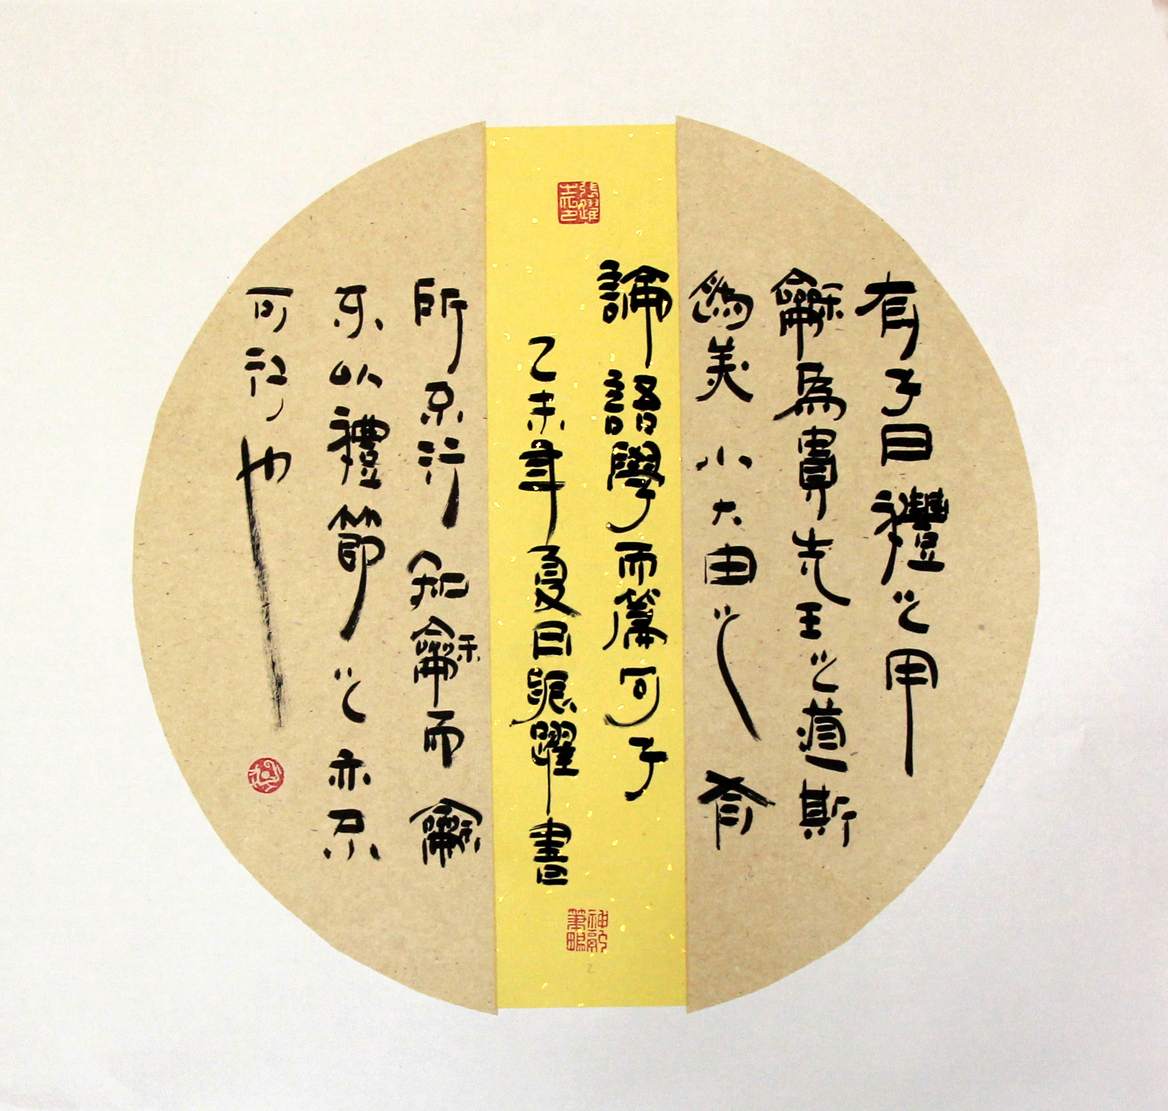 有子曰禮之用
龢為貴先王之道斯
為美小大由之有
論語學而篇子
乙未年夏日張躍書
所不行知龢而龢
不以禮節之亦不
可行也